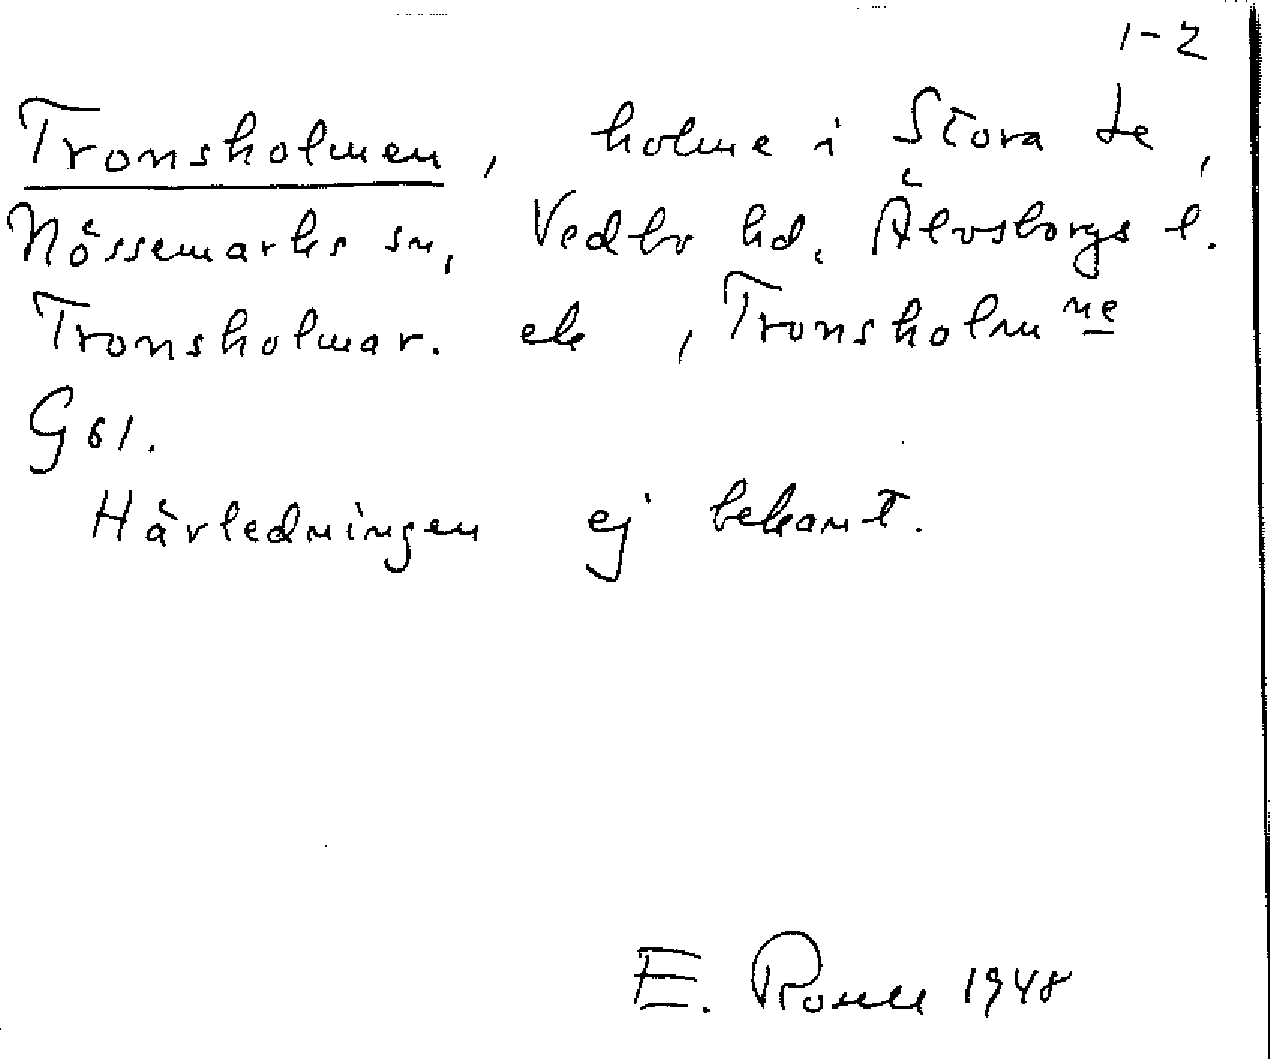 1-2
Tronsholmen, holme i Stora Le,
Nössemarks sn, Vedbo hd. Älvsborgs l.
Tronsholmar. ek, Tronsholmne
G61.
Härledningen ej bekant.
E. Rosell 1948